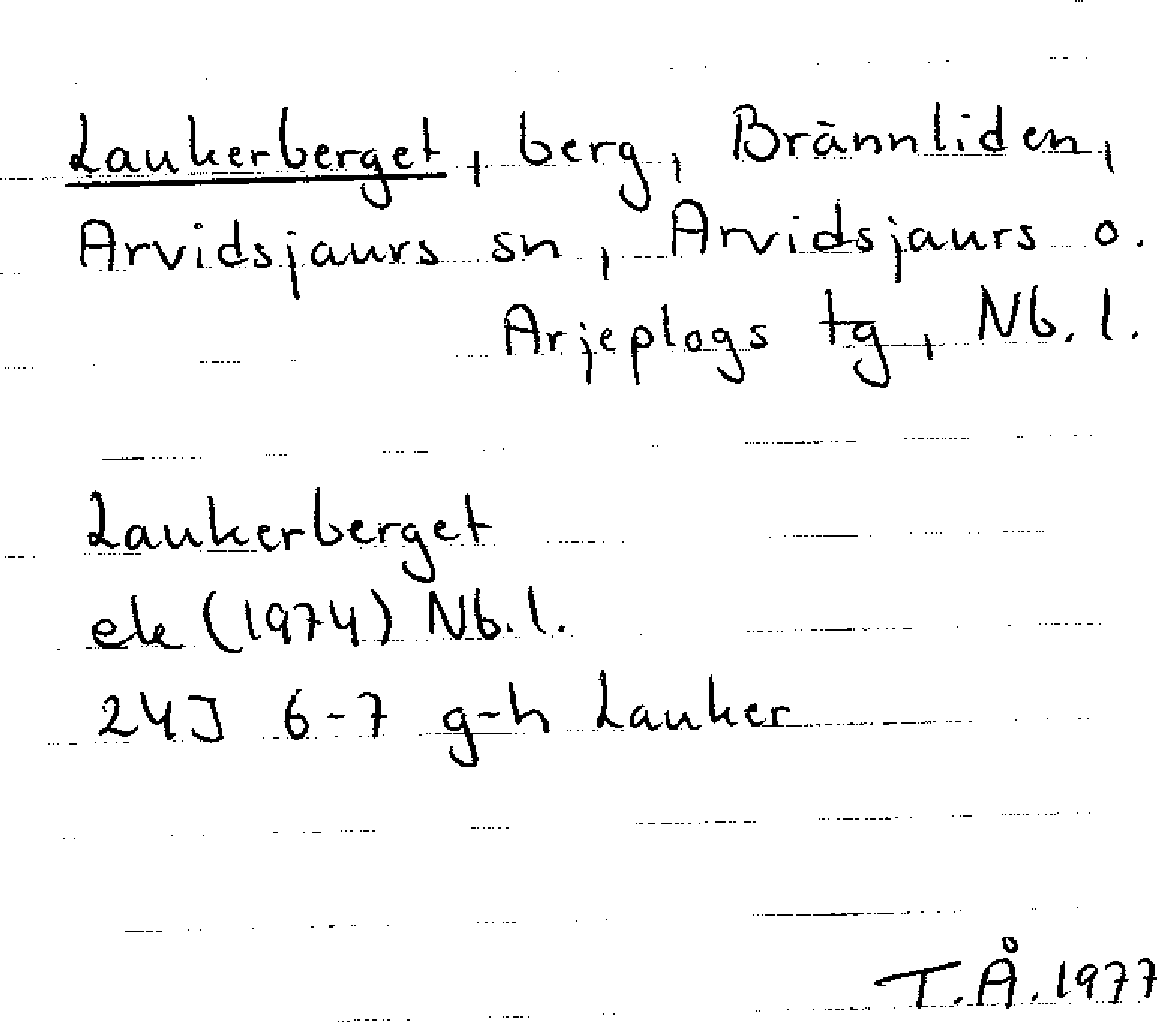 Laukerberget, berg, Brännliden,
Arvidsjaurs sn, Arvidsjaurs o.
Arjeplogs tg, Nb. l.
Laukerberget
ek (1974) Nb. l.
24J 6-7 g-h Lauker
T.Å. 1977